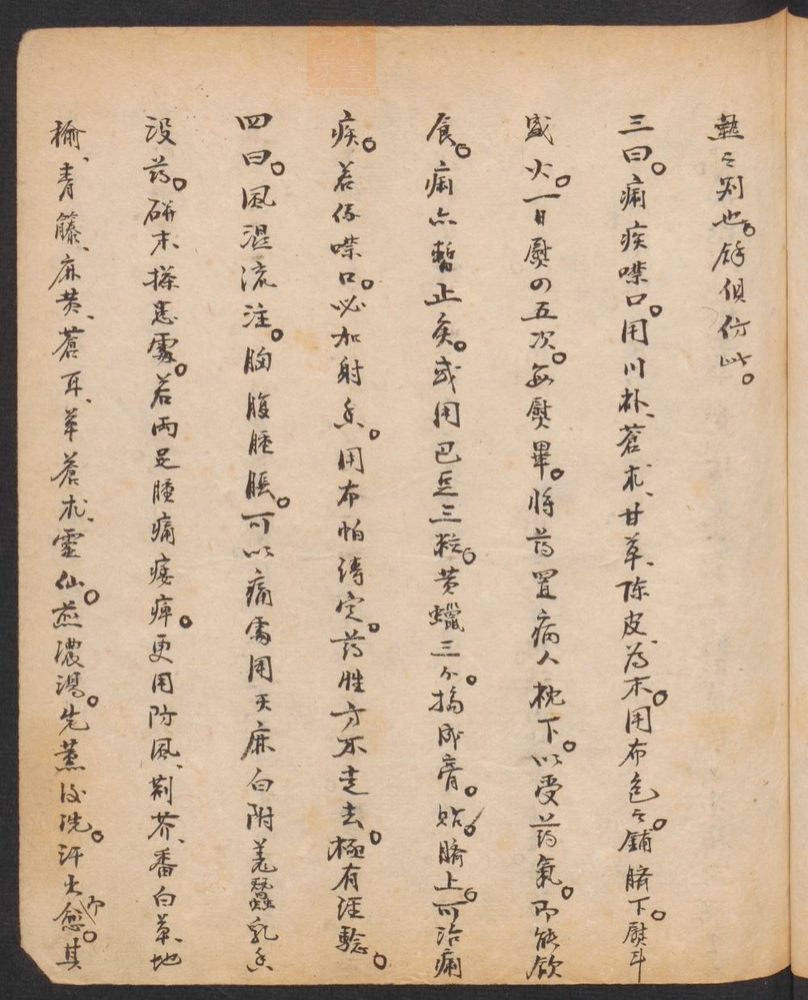 熱之别也。餘俱仿此。
三曰。痢疾噤口。用川朴、蒼朮、甘草、陈皮、為末。用布包之。鋪臍下。熨斗
盛火。一日熨の五次。每熨畢。将药置病人枕下。以受药氣。即能飲
食。痢亦暫止矣。或用巴豆三粒。黄蠟三个。搗成膏。貼臍上。可治痢
疾。若係噤口。必加射香。用布帕縛定。药性方不走去。極有經驗。
四曰。風湿流注。胸腹腫脹。可以痛處用天麻白附羌蠶乳香
没药。研末搽患處。若両足腫痛痿痺。更用防風、荆芥、番白草、地
榆、青籐、麻黄、蒼耳、草蒼朮、靈仙。煎濃湯。先蒸後洗。汗出即愈。其